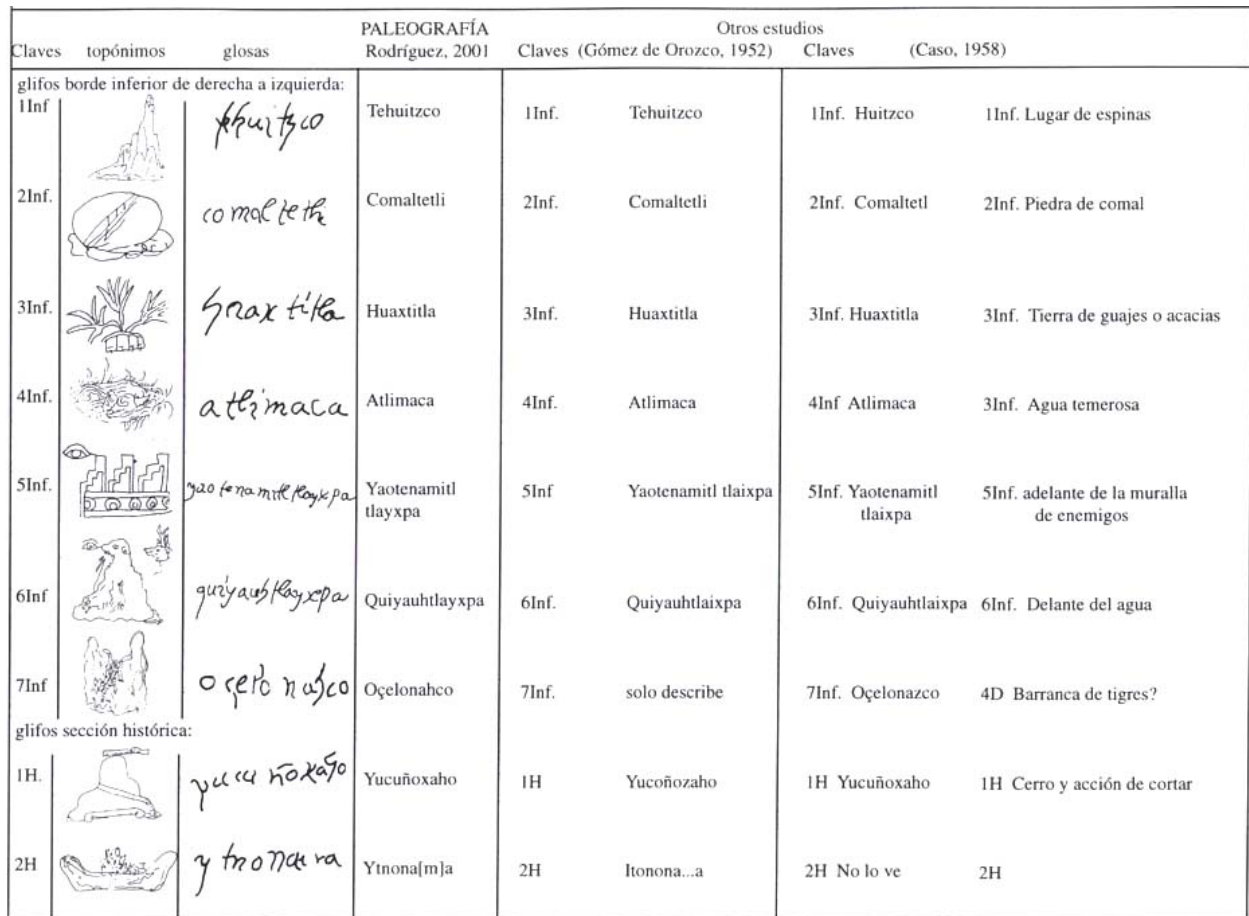 PALEOGRAFÍA Otros estudios
Claves topónimos glosas Rodríguez, 2001 Claves (Gómez de Orozco, 1952) Claves (Caso, 1958)
glifos borde inferior de derecha a izquierda:
1Inf Tehuitzco 1Inf. Tehuitzco 1Inf. Huitzco 1Inf. Lugar de espinas
2Inf. comaltetli Comaltetli 2Inf. Comaltetli 2Inf. Comaltetl 2Inf. Piedra de comal
3Inf. huaxtitla Huaxtitla 3Inf. Huaxtitla 3Inf. Huaxtitla 3Inf. Tierra de guajes o acacias
4Inf. atlimaca Atlimaca 4Inf. Atlimaca 4Inf Atlimaca 3Inf. Agua temerosa
5Inf. yaotenamitl tlayxpa Yaotenamitl 5Inf Yaotenamitl tlaixpa 5Inf. Yaotenamitl 5Inf. adelante de la muralla
tlayxpa tlaixpa de enemigos
6Inf quiyauhtlayxpa Quiyauhtlayxpa 6Inf. Quiyauhtlaixpa 6Inf. Quiyauhtlaixpa 6Inf. Delante del agua
7Inf oçelonahco Oçelonahco 7Inf. solo describe 7Inf. Oçelonazco 4D Barranca de tigres?
glifos sección histórica:
1H. yucuñoxaho Yucuñoxaho 1H Yucoñozaho 1H Yucuñoxaho 1H Cerro y acción de cortar
2H Ytnona[m]a 2H Itonona...a 2H No lo ve 2H